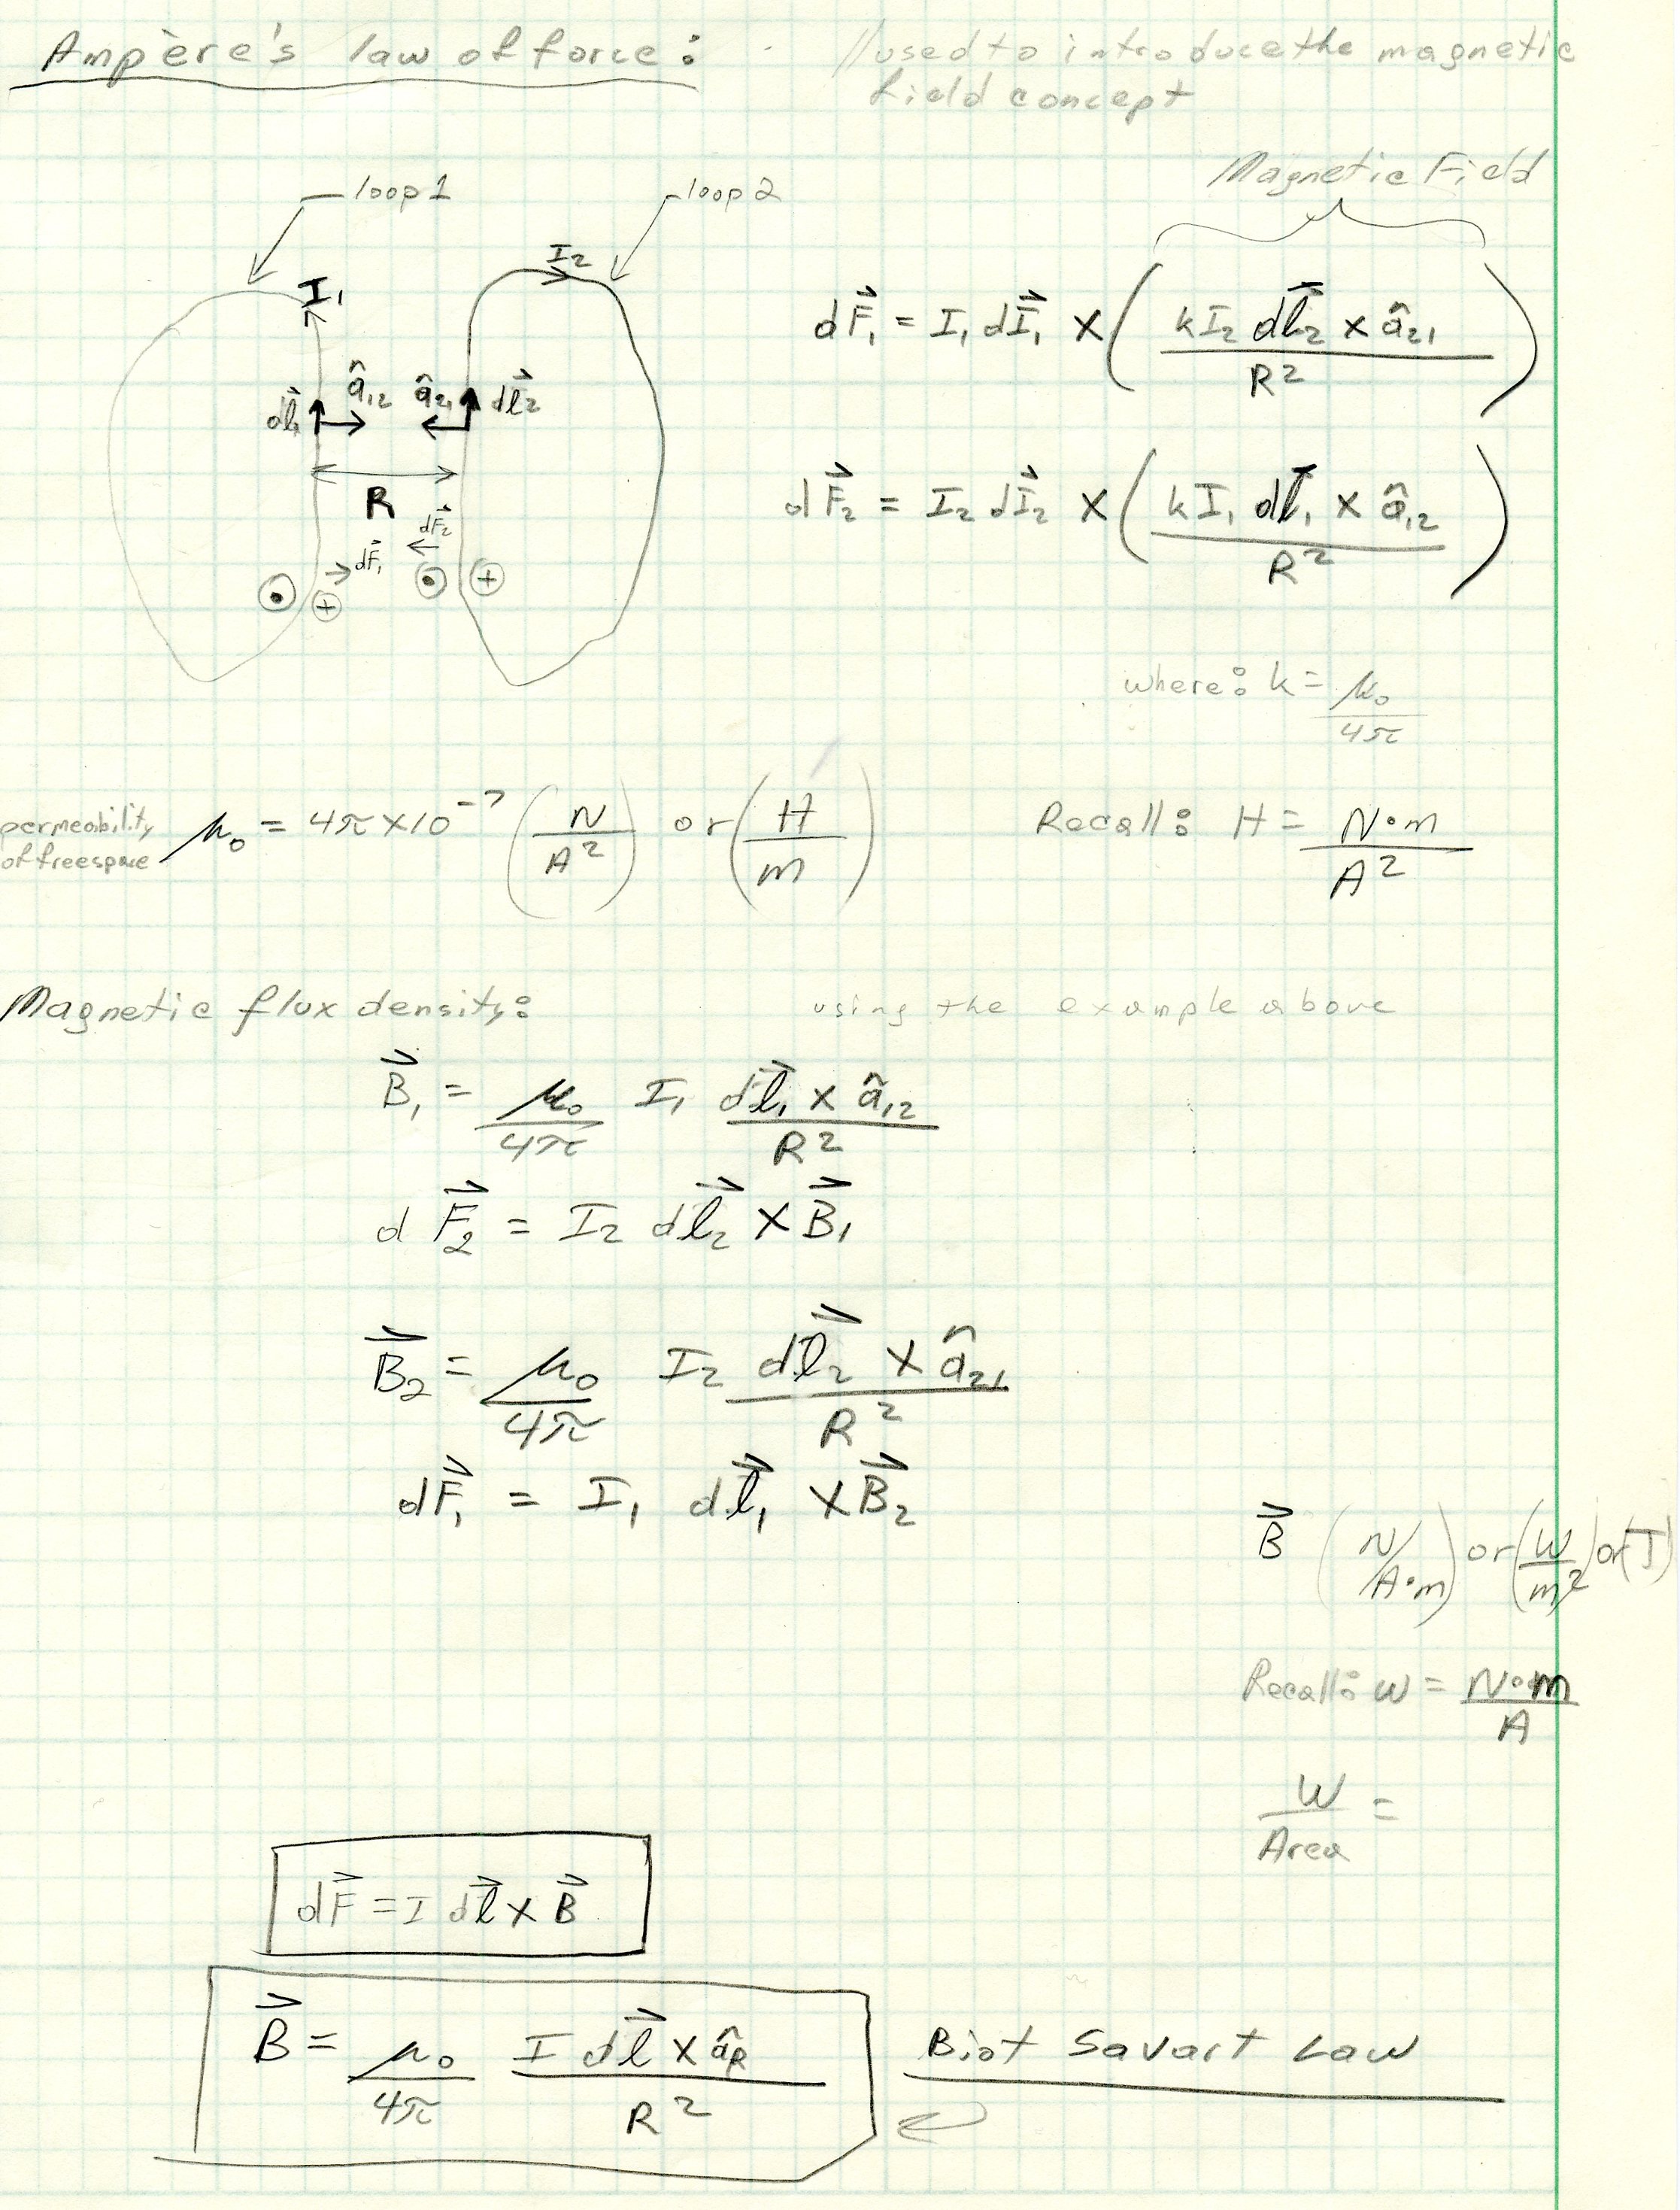 Ampère's law of force:
//used to introduce the magnetic
field concept
loop 1
loop 2
Magnetic Field
I₁
I₂
dF⃗₁ = I₁ dI⃗₁ × ( kI₂ dl⃗₂ × â₂₁ / R² )
dl⃗₁ â₁₂ â₂₁ dl⃗₂
R
dF⃗₂ = I₂ dI⃗₂ × ( kI₁ dl⃗₁ × â₁₂ / R² )
dF⃗₂
dF⃗₁
where: k = μ₀ / 4π
permeability
of free space
μ₀ = 4π×10⁻⁷ (N / A²) or (H / m)
Recall: H = N·m / A²
Magnetic flux density:
using the example above
B⃗₁ = μ₀ / 4π I₁ dl⃗₁ × â₁₂ / R²
dF⃗₂ = I₂ dl⃗₂ × B⃗₁
B⃗₂ = μ₀ / 4π I₂ dl⃗₂ × â₂₁ / R²
dF⃗₁ = I₁ dl⃗₁ × B⃗₂
B⃗ (N / A·m) or (W / m²) or (T)
Recall: W = N·m / A
W / Area =
dF⃗ = I dl⃗ × B⃗
B⃗ = μ₀ / 4π I dl⃗ × âR / R²
Biot Savart Law